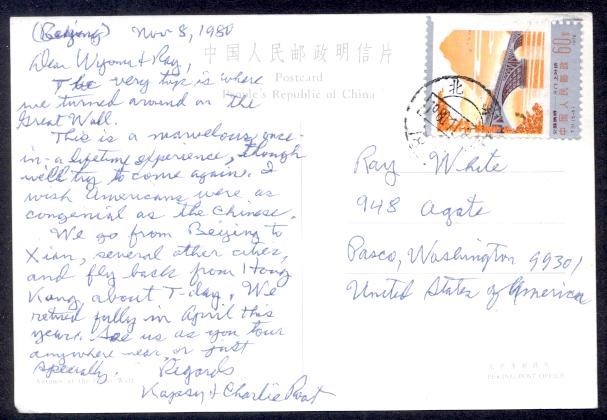 (Beijing) Nov 8, 1980
Dear Wyoma & Ray,
The very top is where
we turned around on the
Great Wall.
This is a marvelous, once-
in-a lifetime experience, though
we'll try to come again. I
wish Americans were as
congenial as the Chinese.
We go from Beijing to
Xian, several other cities,
and fly back from Hong
Kong, about T-day. We
retired fully in April this
year. See us as you tour
anywhere near, or just
specially. Regards
& Charlie
中国人民邮政明信片
Postcard
People's Republic of China
60分
中国人民邮政
北
Ray White
948 Agate
Pasco, Washington 99301
United States of America
PEKING POST OFFICE